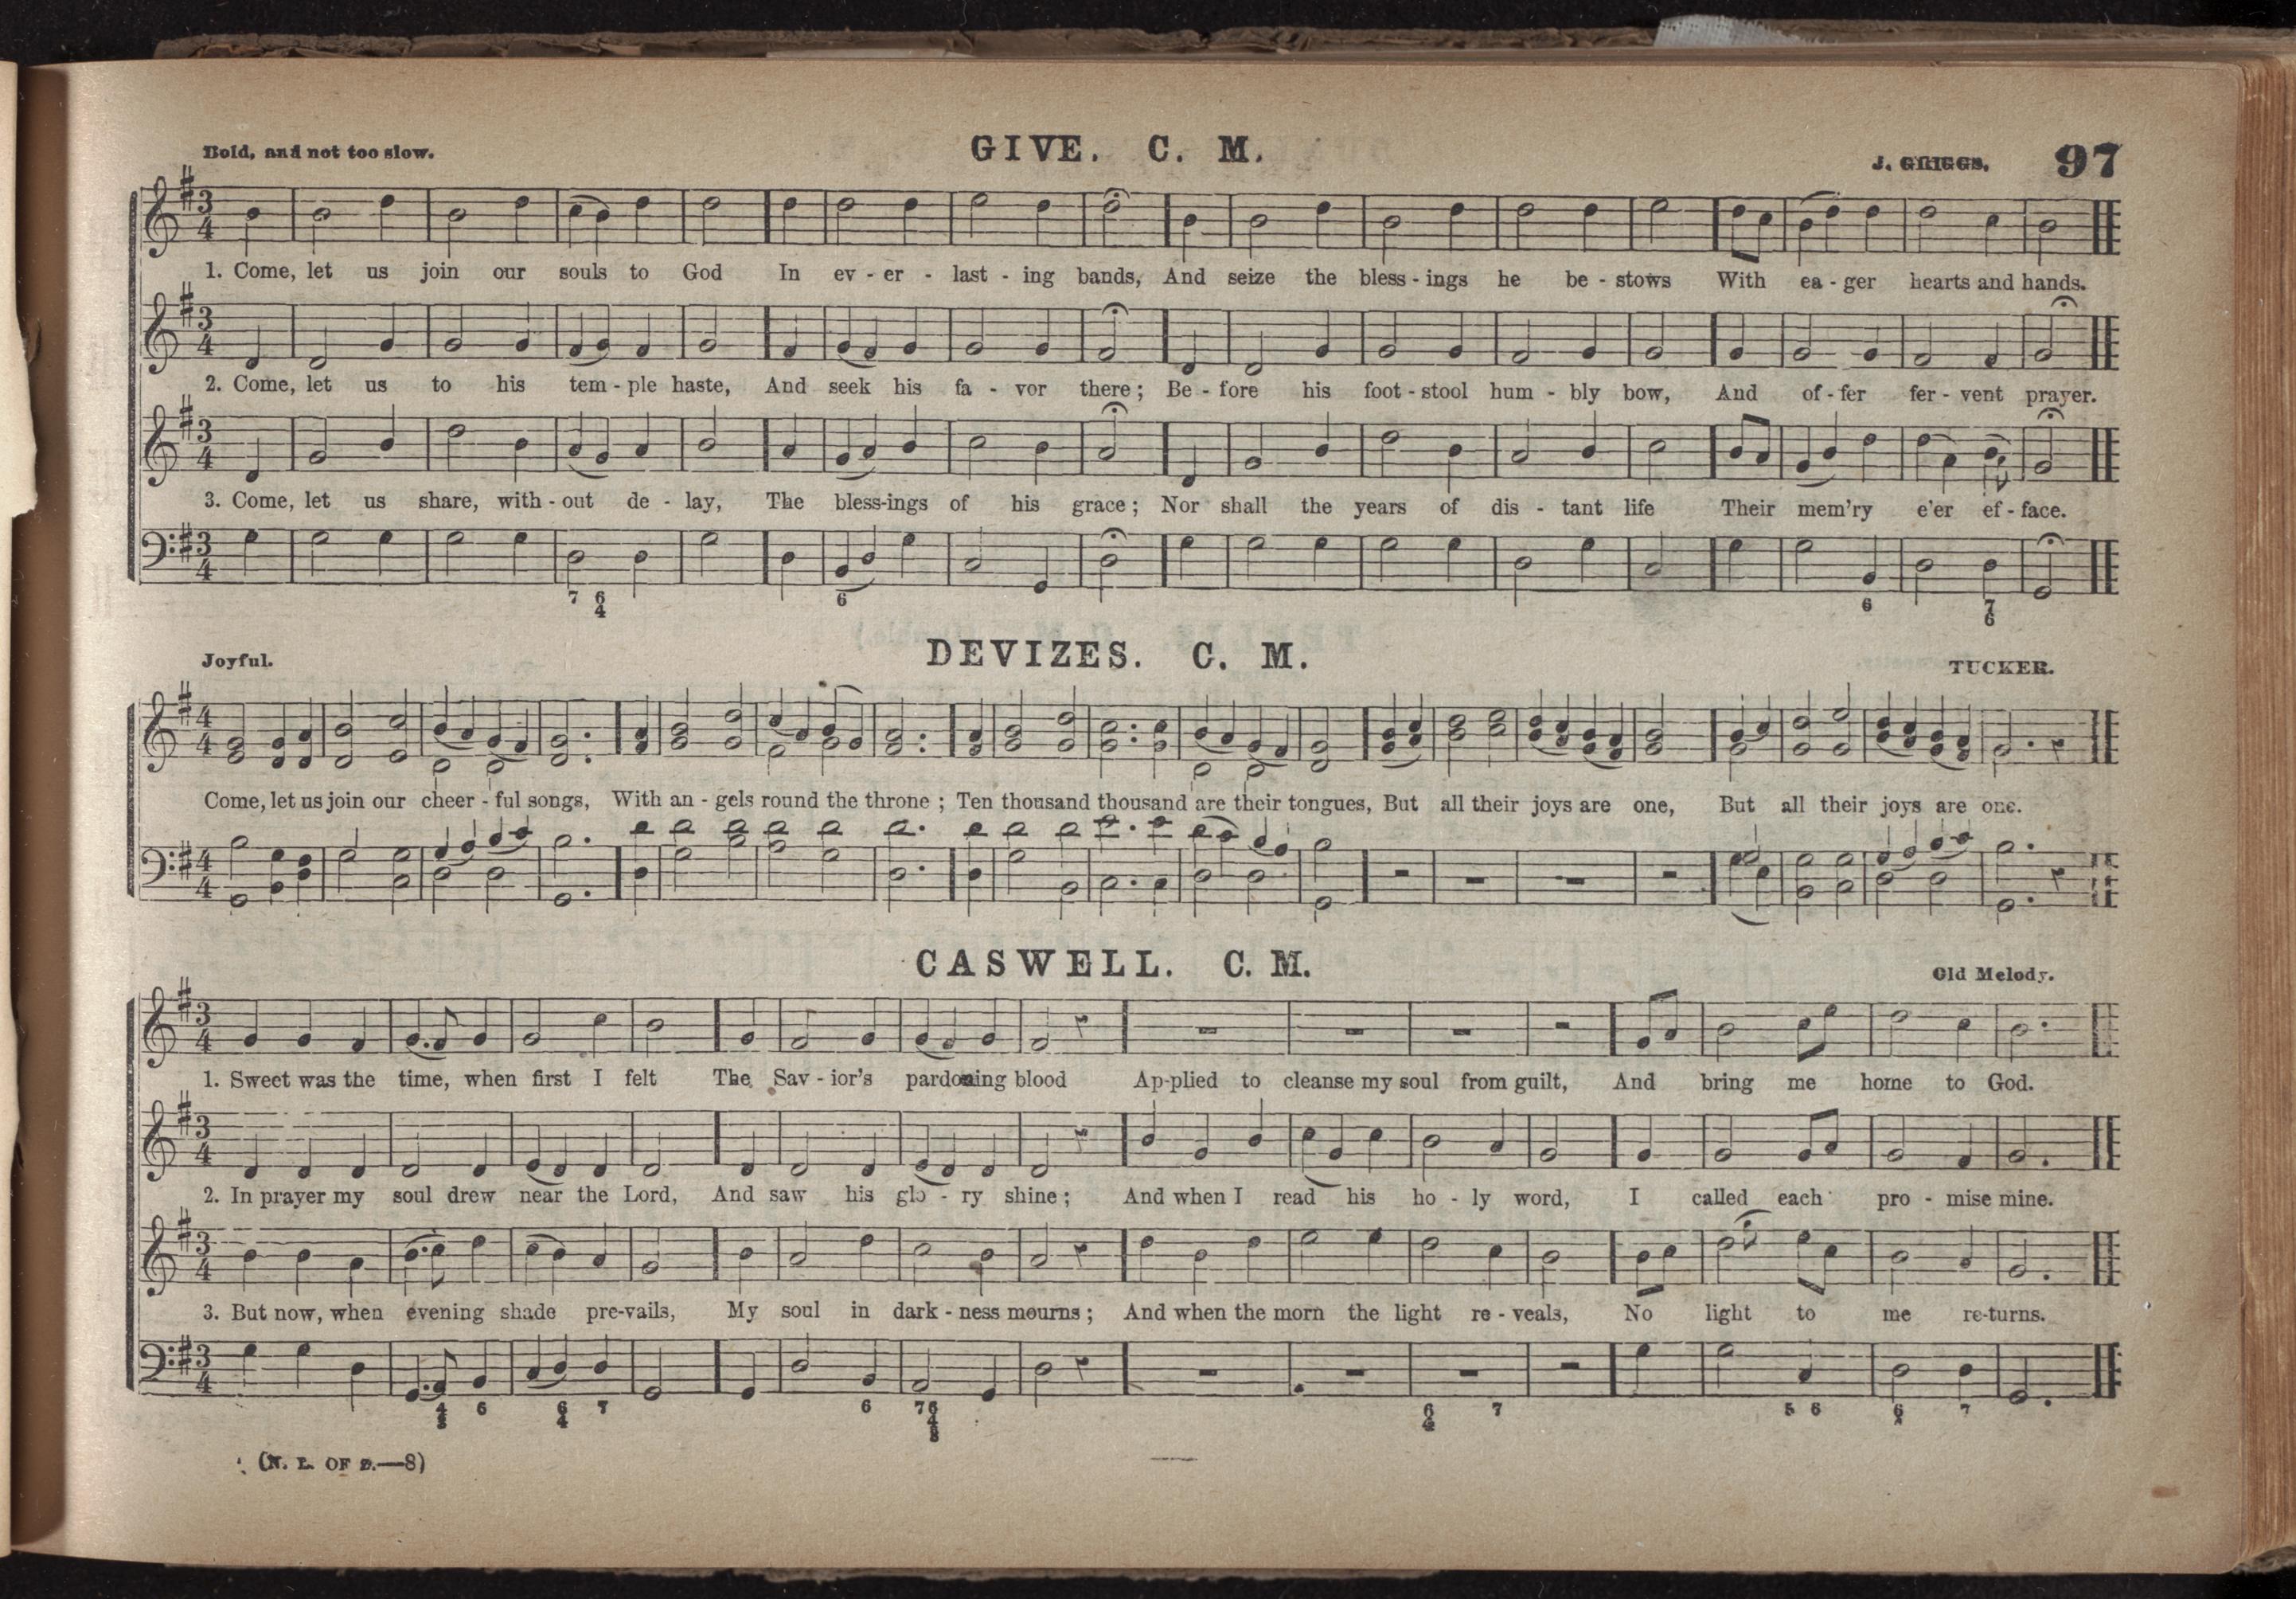 Bold, and not too slow.
GIVE. C. M.
J. GRIGGS.
97
1. Come, let us join our souls to God In ev - er - last - ing bands, And seize the bless - ings he be - stows With ea - ger hearts and hands.
2. Come, let us to his tem - ple haste, And seek his fa - vor there; Be - fore his foot - stool hum - bly bow, And of - fer fer - vent prayer.
3. Come, let us share, with - out de - lay, The bless-ings of his grace; Nor shall the years of dis - tant life Their mem'ry e'er ef - face.
7 6 6 6 7
4 6
Joyful.
DEVIZES. C. M.
TUCKER.
Come, let us join our cheer - ful songs, With an - gels round the throne; Ten thousand thousand are their tongues, But all their joys are one, But all their joys are one.
CASWELL. C. M.
Old Melody.
1. Sweet was the time, when first I felt The Sav - ior's pardoning blood Ap-plied to cleanse my soul from guilt, And bring me home to God.
2. In prayer my soul drew near the Lord, And saw his glo - ry shine; And when I read his ho - ly word, I called each pro - mise mine.
3. But now, when evening shade pre-vails, My soul in dark - ness mourns; And when the morn the light re - veals, No light to me re-turns.
(N. L. OF Z.—8)